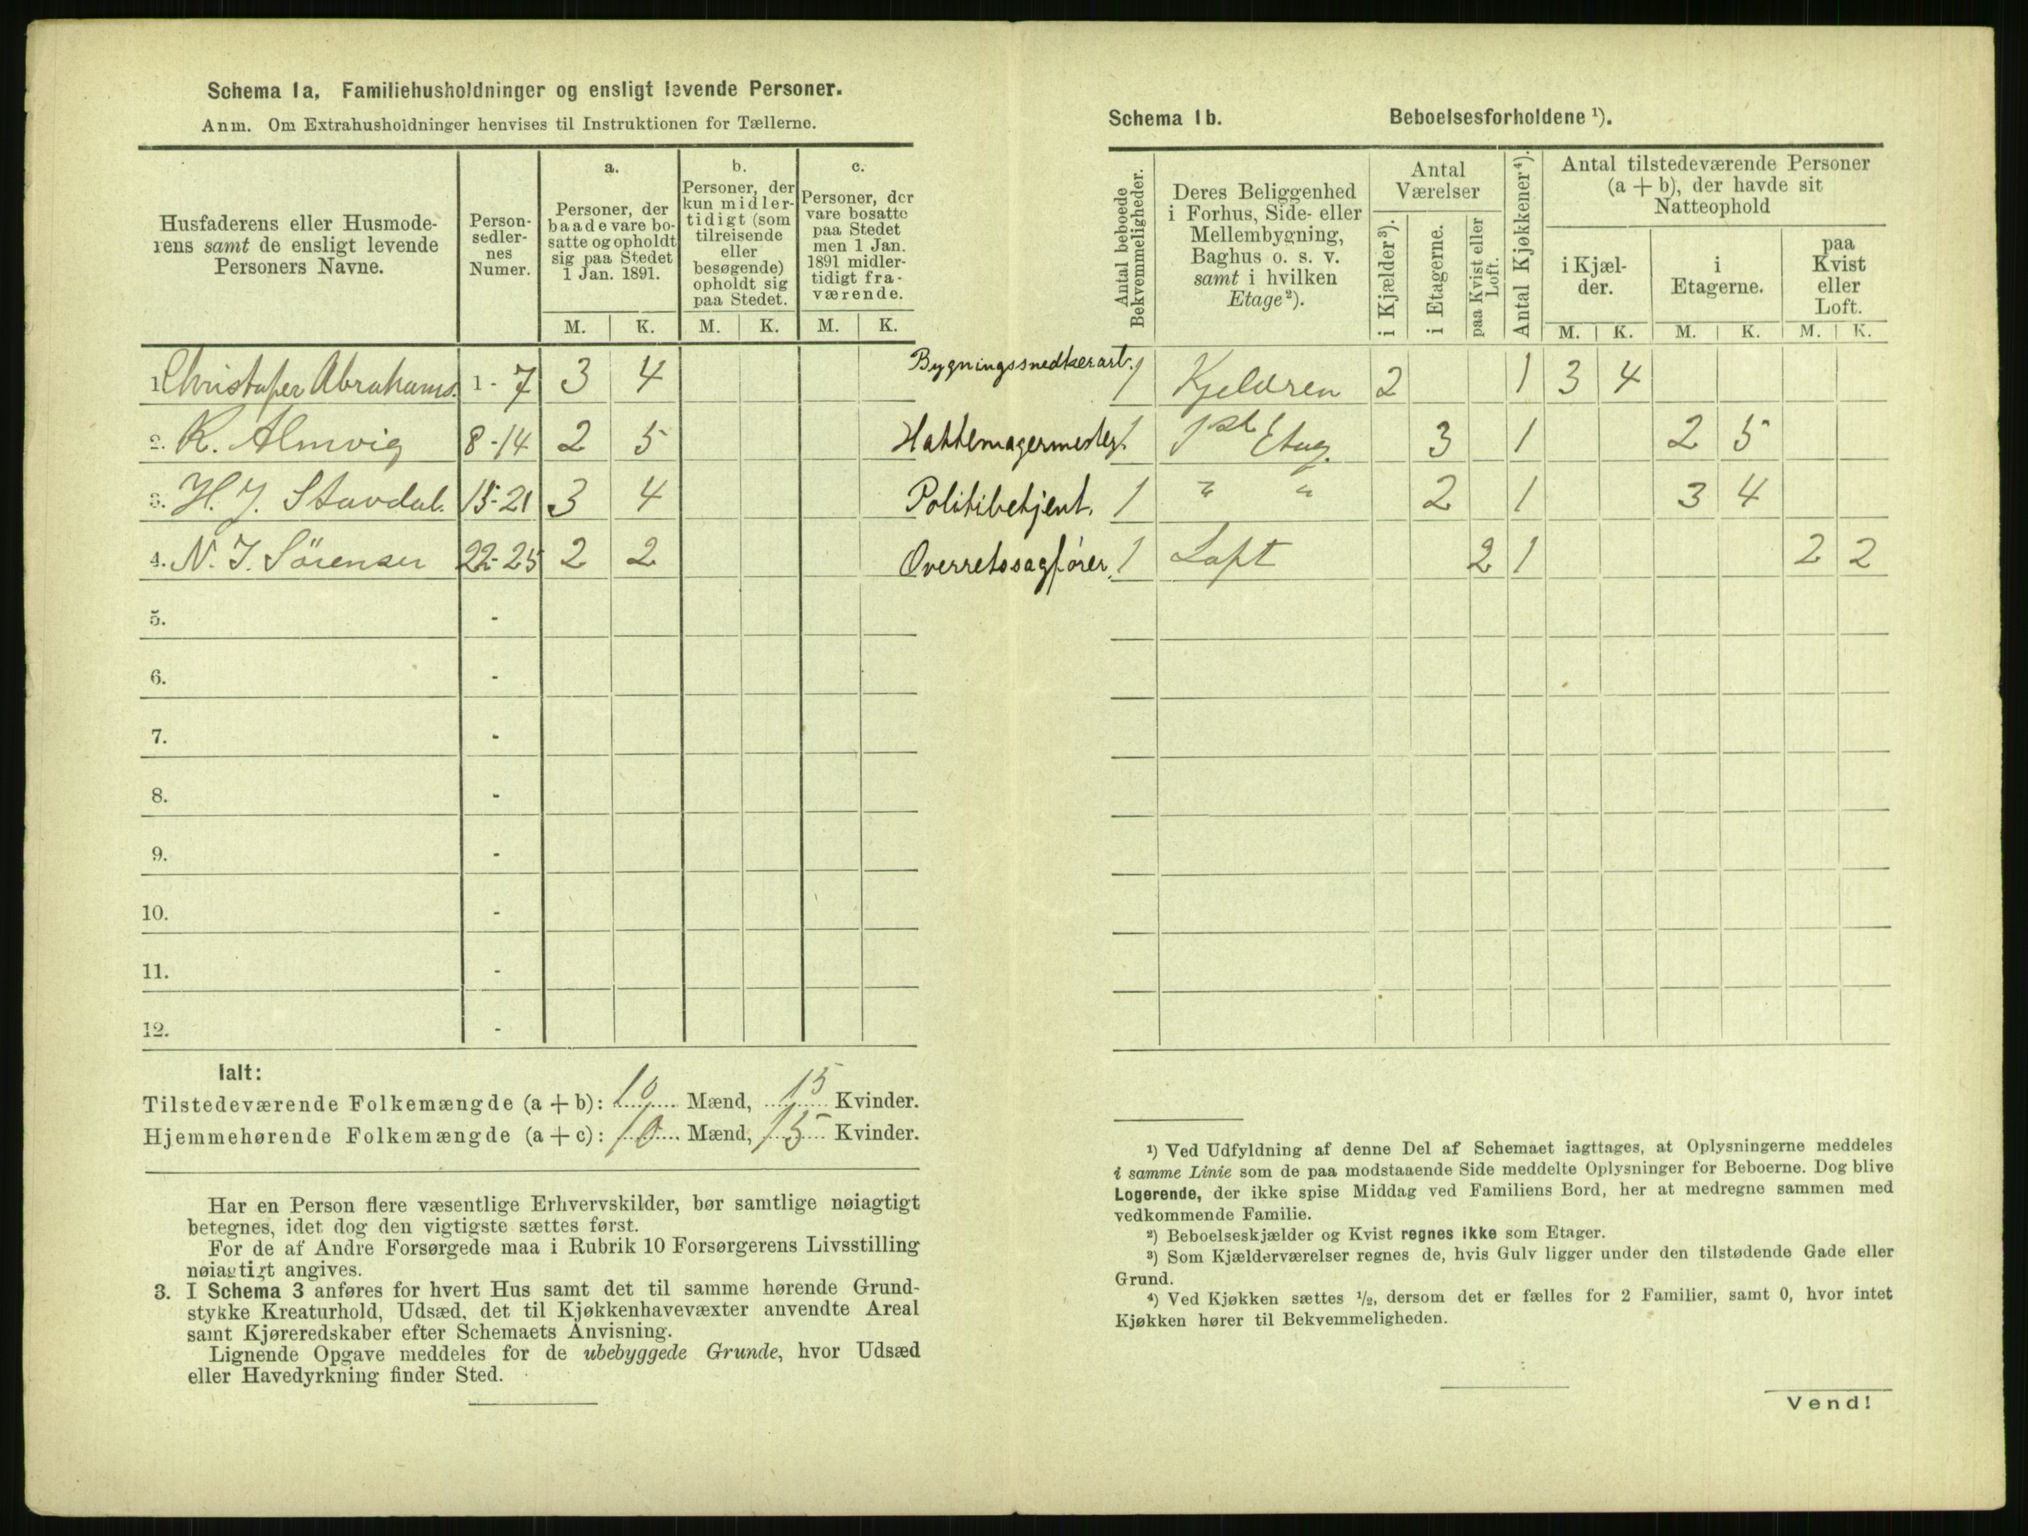 Schema 1a. Familiehusholdninger og ensligt levende Personer.
Anm. Om Extrahusholdninger henvises til Instruktionen for Tællerne.
Husfaderens eller Husmode-
rens samt de ensligt levende
Personers Navne.
Person-
sedler-
nes
Numer.
a.
Personer, der
baade vare bo-
satte og opholdt
sig paa Stedet
1 Jan. 1891.
b.
Personer, der
kun midler-
tidigt (som
tilreisende
eller
besøgende)
opholdt sig
paa Stedet.
c.
Personer, der
vare bosatte
paa Stedet
men 1 Jan.
1891 midler-
tidigt fra-
værende.
M. K. M. K. M. K.
1. Christofer Abrahams. 1 - 7 3 4
2. K. Almvig 8-14 2 5
3. H. J. Stavdal. 15-21 3 4
4. N. J. Sørensen 22-25 2 2
5. -
6. -
7. -
8. -
9. -
10. -
11. -
12. -
Ialt:
Tilstedeværende Folkemængde (a + b): 10 Mænd, 15 Kvinder.
Hjemmehørende Folkemængde (a + c): 10 Mænd, 15 Kvinder.
Har en Person flere væsentlige Erhvervskilder, bør samtlige nøiagtigt
betegnes, idet dog den vigtigste sættes først.
For de af Andre Forsørgede maa i Rubrik 10 Forsørgerens Livsstilling
nøiagtigt angives.
3. I Schema 3 anføres for hvert Hus samt det til samme hørende Grund-
stykke Kreaturhold, Udsæd, det til Kjøkkenhavevæxter anvendte Areal
samt Kjøreredskaber efter Schemaets Anvisning.
Lignende Opgave meddeles for de ubebyggede Grunde, hvor Udsæd
eller Havedyrkning finder Sted.
Schema 1b. Beboelsesforholdene ¹).
Antal beboede
Bekvemmeligheder.
Deres Beliggenhed
i Forhus, Side- eller
Mellembygning,
Baghus o. s. v.
samt i hvilken
Etage²).
Antal
Værelser
i Kjælder³).
i Etagerne.
paa Kvist eller
Loft.
Antal Kjøkkener⁴).
Antal tilstedeværende Personer
(a + b), der havde sit
Natteophold
i Kjæl-
der.
i
Etagerne.
paa
Kvist
eller
Loft.
M. K. M. K. M. K.
Bygningssnedkerarb. 1 Kjeldren 2 1 3 4
Hattemagermester. 1 1ste Etag. 3 1 2 5
Politibetjent. 1 " " 2 1 3 4
Overretssagfører. 1 Loft 2 1 2 2
¹) Ved Udfyldning af denne Del af Schemaet iagttages, at Oplysningerne meddeles
i samme Linie som de paa modstaaende Side meddelte Oplysninger for Beboerne. Dog blive
Logerende, der ikke spise Middag ved Familiens Bord, her at medregne sammen med
vedkommende Familie.
²) Beboelseskjælder og Kvist regnes ikke som Etager.
³) Som Kjælderværelser regnes de, hvis Gulv ligger under den tilstødende Gade eller
Grund.
⁴) Ved Kjøkken sættes ½, dersom det er fælles for 2 Familier, samt 0, hvor intet
Kjøkken hører til Bekvemmeligheden.
Vend!